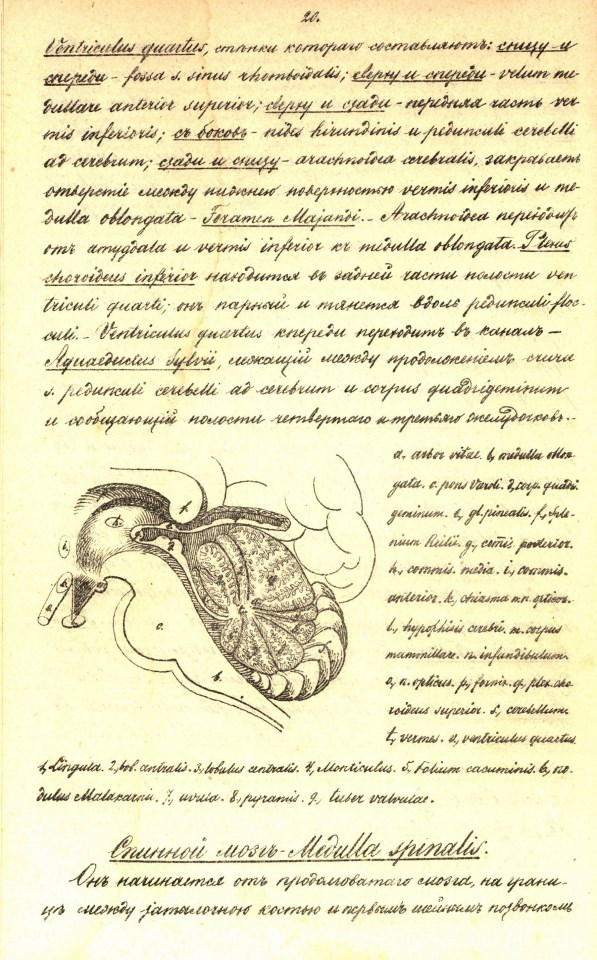 20.
Ventriculus quartus, стѣнки котораго составляютъ: снизу и
спереди - fossa s. sinus rhomboidalis; сверху и спереди - velum me-
dullare anterior superior; сверху и сзади - передняя часть ver-
mis inferioris; съ боковъ - nides hirundinis и pedunculi cerebelli
ad cerebrum; сзади и снизу - arachnoidea cerebralis, закрываетъ
отверстіе между нижнею поверхностью vermis inferioris и me-
dulla oblongata - Foramen Majandi. - Arachnoidea переходитъ
отъ amygdala и vermis inferior къ medulla oblongata. Plexus
choroideus inferior находится въ задней части полости ven-
triculi quarti; онъ парный и тянется вдоль pedunculi floc-
culi. - Ventriculus quartus кпереди переходитъ въ каналъ -
Aquaeductus Sylvii, лежащій между продолженіемъ crura
s. pedunculi cerebelli ad cerebrum и corpus quadrigeminum
и сообщающій полости четвертаго и третьяго желудочковъ. -
a, arbor vitae. b, medulla oblon-
gata. c, pons Varoli. d, corp. quadri-
geminum. e, gl. pinealis. f, Sple-
nium Reilii. g, comis. posterior.
h, commis. media. i, commis.
anterior. k, chiasma nn. opticor.
l, hyphophisis cerebri. m, corpus
mammillare. n, infundibulum.
o, n. opticus. p, fornix. q, plex. cho-
roideus superior. s, cerebellum.
t, vermes. u, ventriculus quartus.
1, Lingula. 2, lob. centralis. 3, lobulus centralis. 4, Monticulus. 5, folium cacuminis. 6, no-
dulus Malakarnii. 7, uvula. 8, pyramis. 9, tuber valvulae.
Спинной мозгъ - Medulla spinalis.
Онъ начинается отъ продолговатаго мозга, на грани-
цѣ между затылочною костью и первымъ шейнымъ позвонкомъ